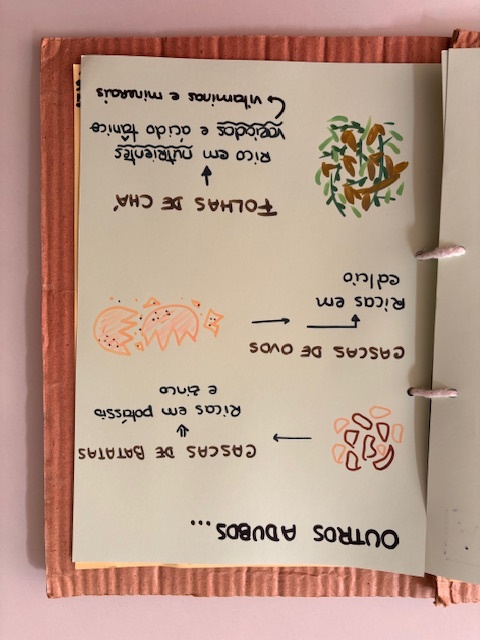 OUTROS ADUBOS...
CASCAS DE BATATAS
Ricas em potássio
e zinco
CASCAS DE OVOS
Ricas em
cálcio
FOLHAS DE CHÁ
Rico em nutrientes
variados e ácido tânico
↳ vitaminas e minerais